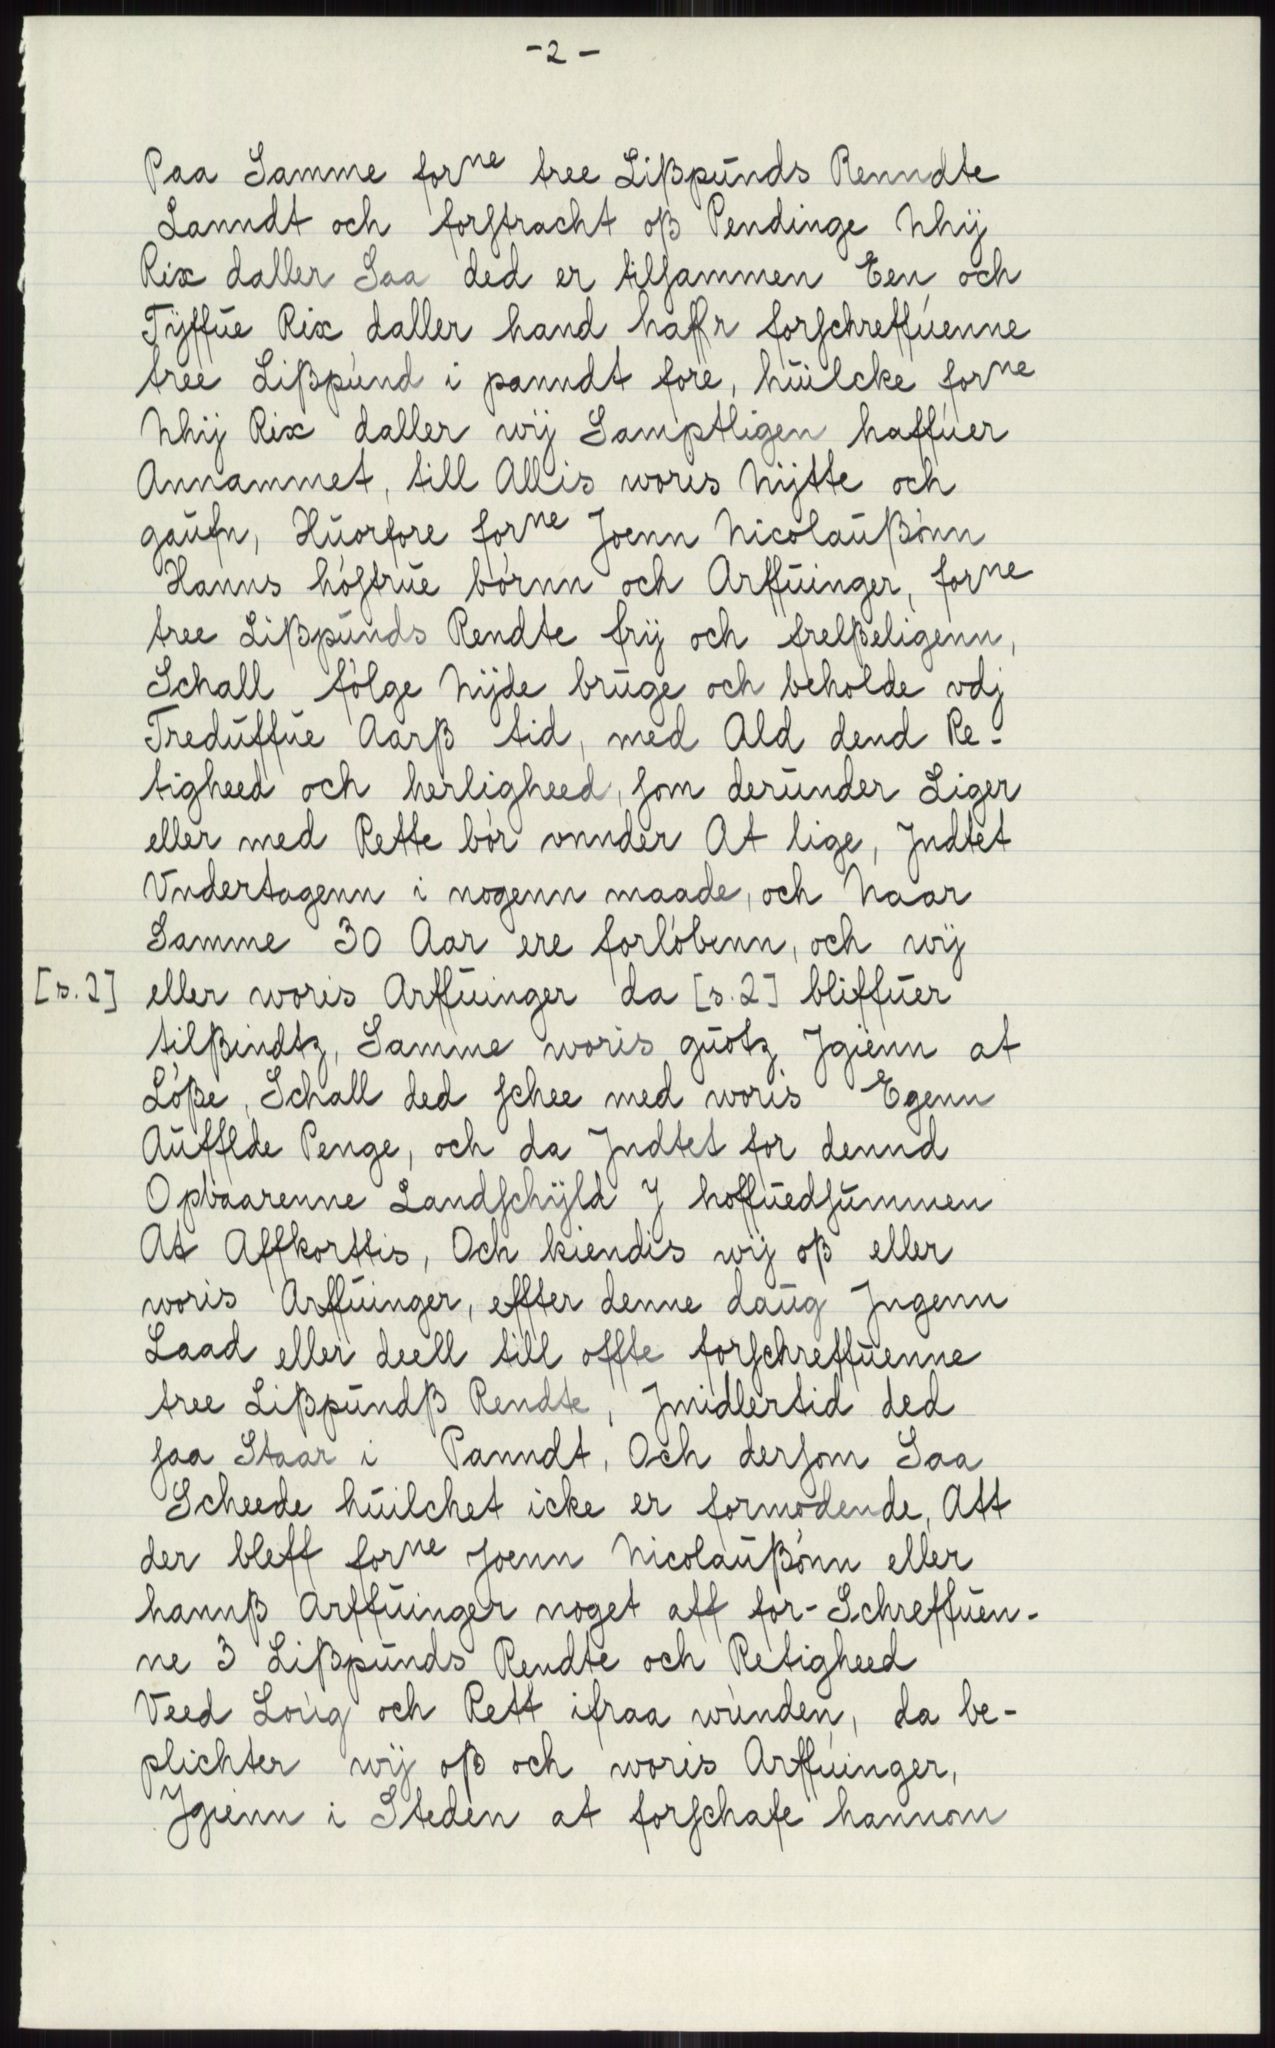 -2-
Paa Samme forne tree Lißpunds Renndte
Lanndt och forstracht oß Pendinge Nhij
Rix daller Saa ded er tilsammen Een och
Tÿffue Rix daller hand haffr forschreffuenne
tree Lißpund i panndt fore, huilcke forne
Nhij Rix daller wij Samptligen haffuer
Annammet, till Allis woris Nÿtte och
gaufn, Huorfore forne Joenn Nicolaußónn
Hanns hóstrue bórnn och Arffuinger, forne
tree Lißpunds Rendte frij och frelßeligenn,
Schall fólge Nÿde bruge och beholde vdj
Treduffue Aarß tid, med Ald dend Re-
tigheed och herligheed, som derunder Liger
eller med Rette bór vnnder At lige, Jndtet
Vndertagenn i nogenn maade, och Naar
Samme 30 Aar ere forlóbenn, och wij
[s.2] eller woris Arffuinger da [s.2] bliffuer
tilßindtz, Samme woris guotz Jgienn at
Lóße, Schall ded schee med woris Egenn
Aufflde Penge, och da Jndtet for dennd
Opbaarenne Landschÿld J hoffuedsummen
At Affkorttis, Och kiendis wij oß eller
woris Arffuinger, effter denne daug Jngenn
Laad eller deell till offte forschreffuenne
tree Lißpundß Rendte, Jmidlertid ded
saa Staar i Panndt, Och dersom Saa
Scheede huilchet icke er formodende, Att
der bleff forne Joenn Nicolaußónn eller
hannß Arffuinger noget aff for-Schreffuen-
ne 3 Lißpunds Rendte och Retigheed
Veed Loug och Rett ifraa wunden, da be-
plichter wij oß och woris Arffuinger,
Jgienn i Steden at forschafe hannom